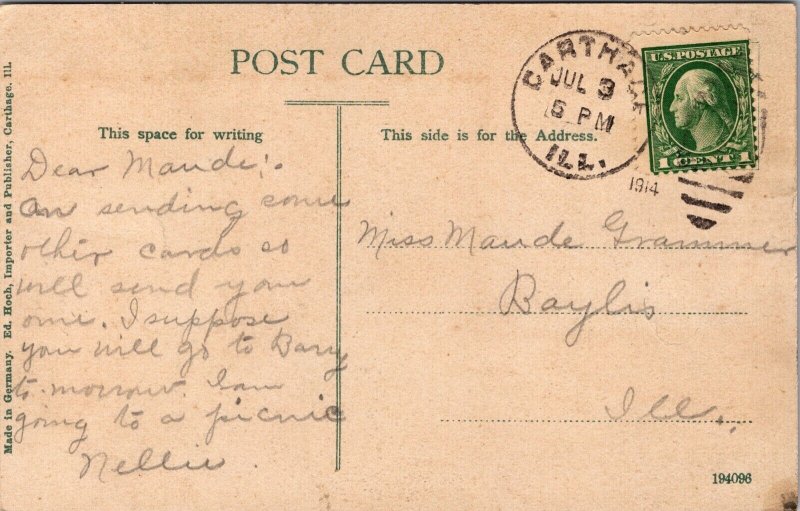 POST CARD
This space for writing
This side is for the Address.
CARTHAGE
JUL 3
5 PM
ILL.
1914
U.S. POSTAGE
1 CENT 1
Dear Maude:.
am sending some
other cards so
will send you
one. I suppose
you will go to Barry
to-morrow. I am
going to a picnic
Nellie
Miss Maude Grammer
Baylis
Ill.
Made in Germany. Ed. Hoch, Importer and Publisher, Carthage. Ill.
194096